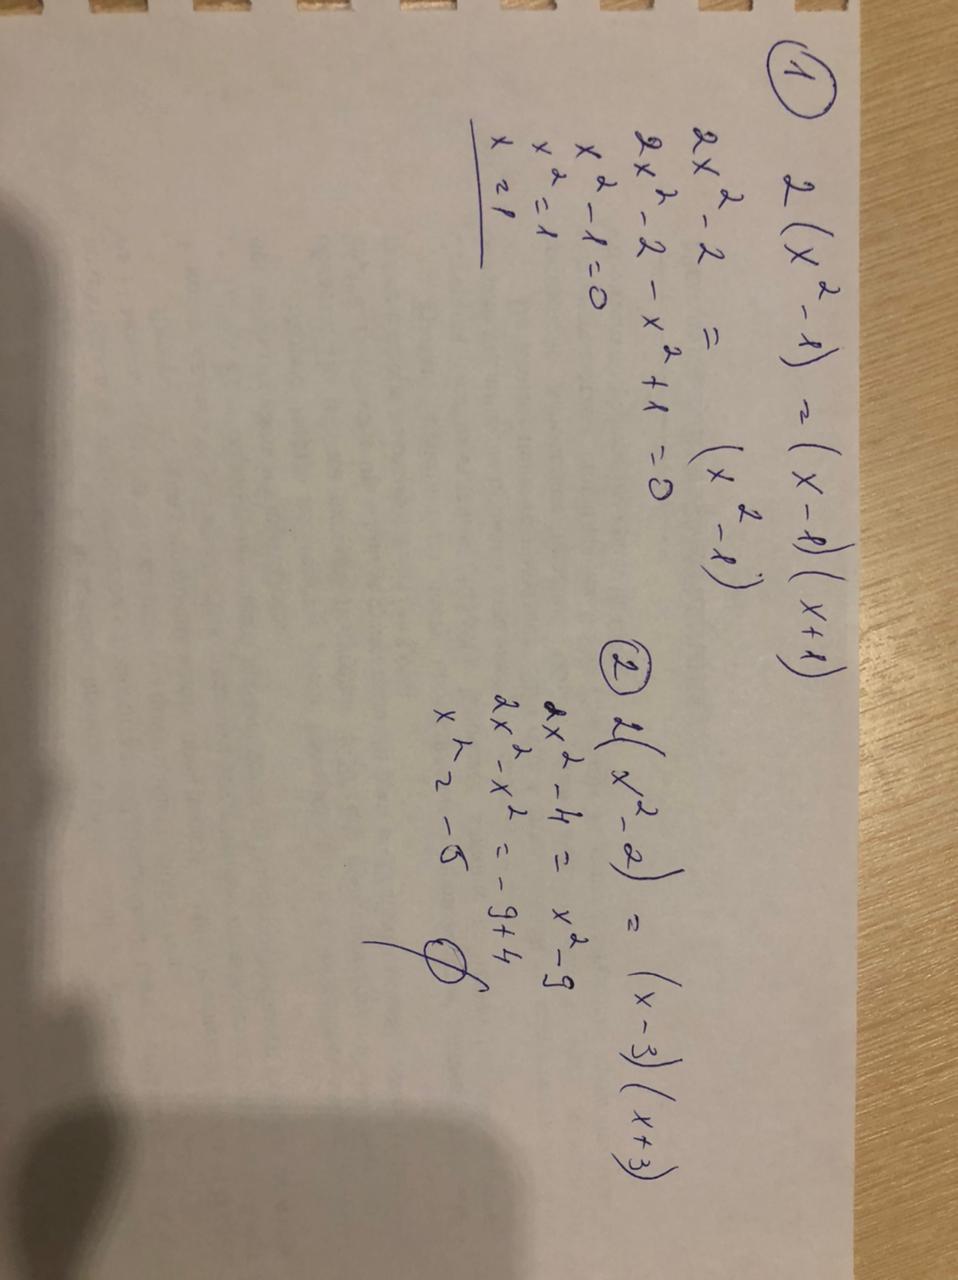 ① 2(x² - 1) = (x - 1)(x + 1)
2x² - 2 = (x² - 1)
2x² - 2 - x² + 1 = 0
x² - 1 = 0
x² = 1
x = 1
② 2(x² - 2) = (x - 3)(x + 3)
2x² - 4 = x² - 9
2x² - x² = -9 + 4
x² = -5 ∅